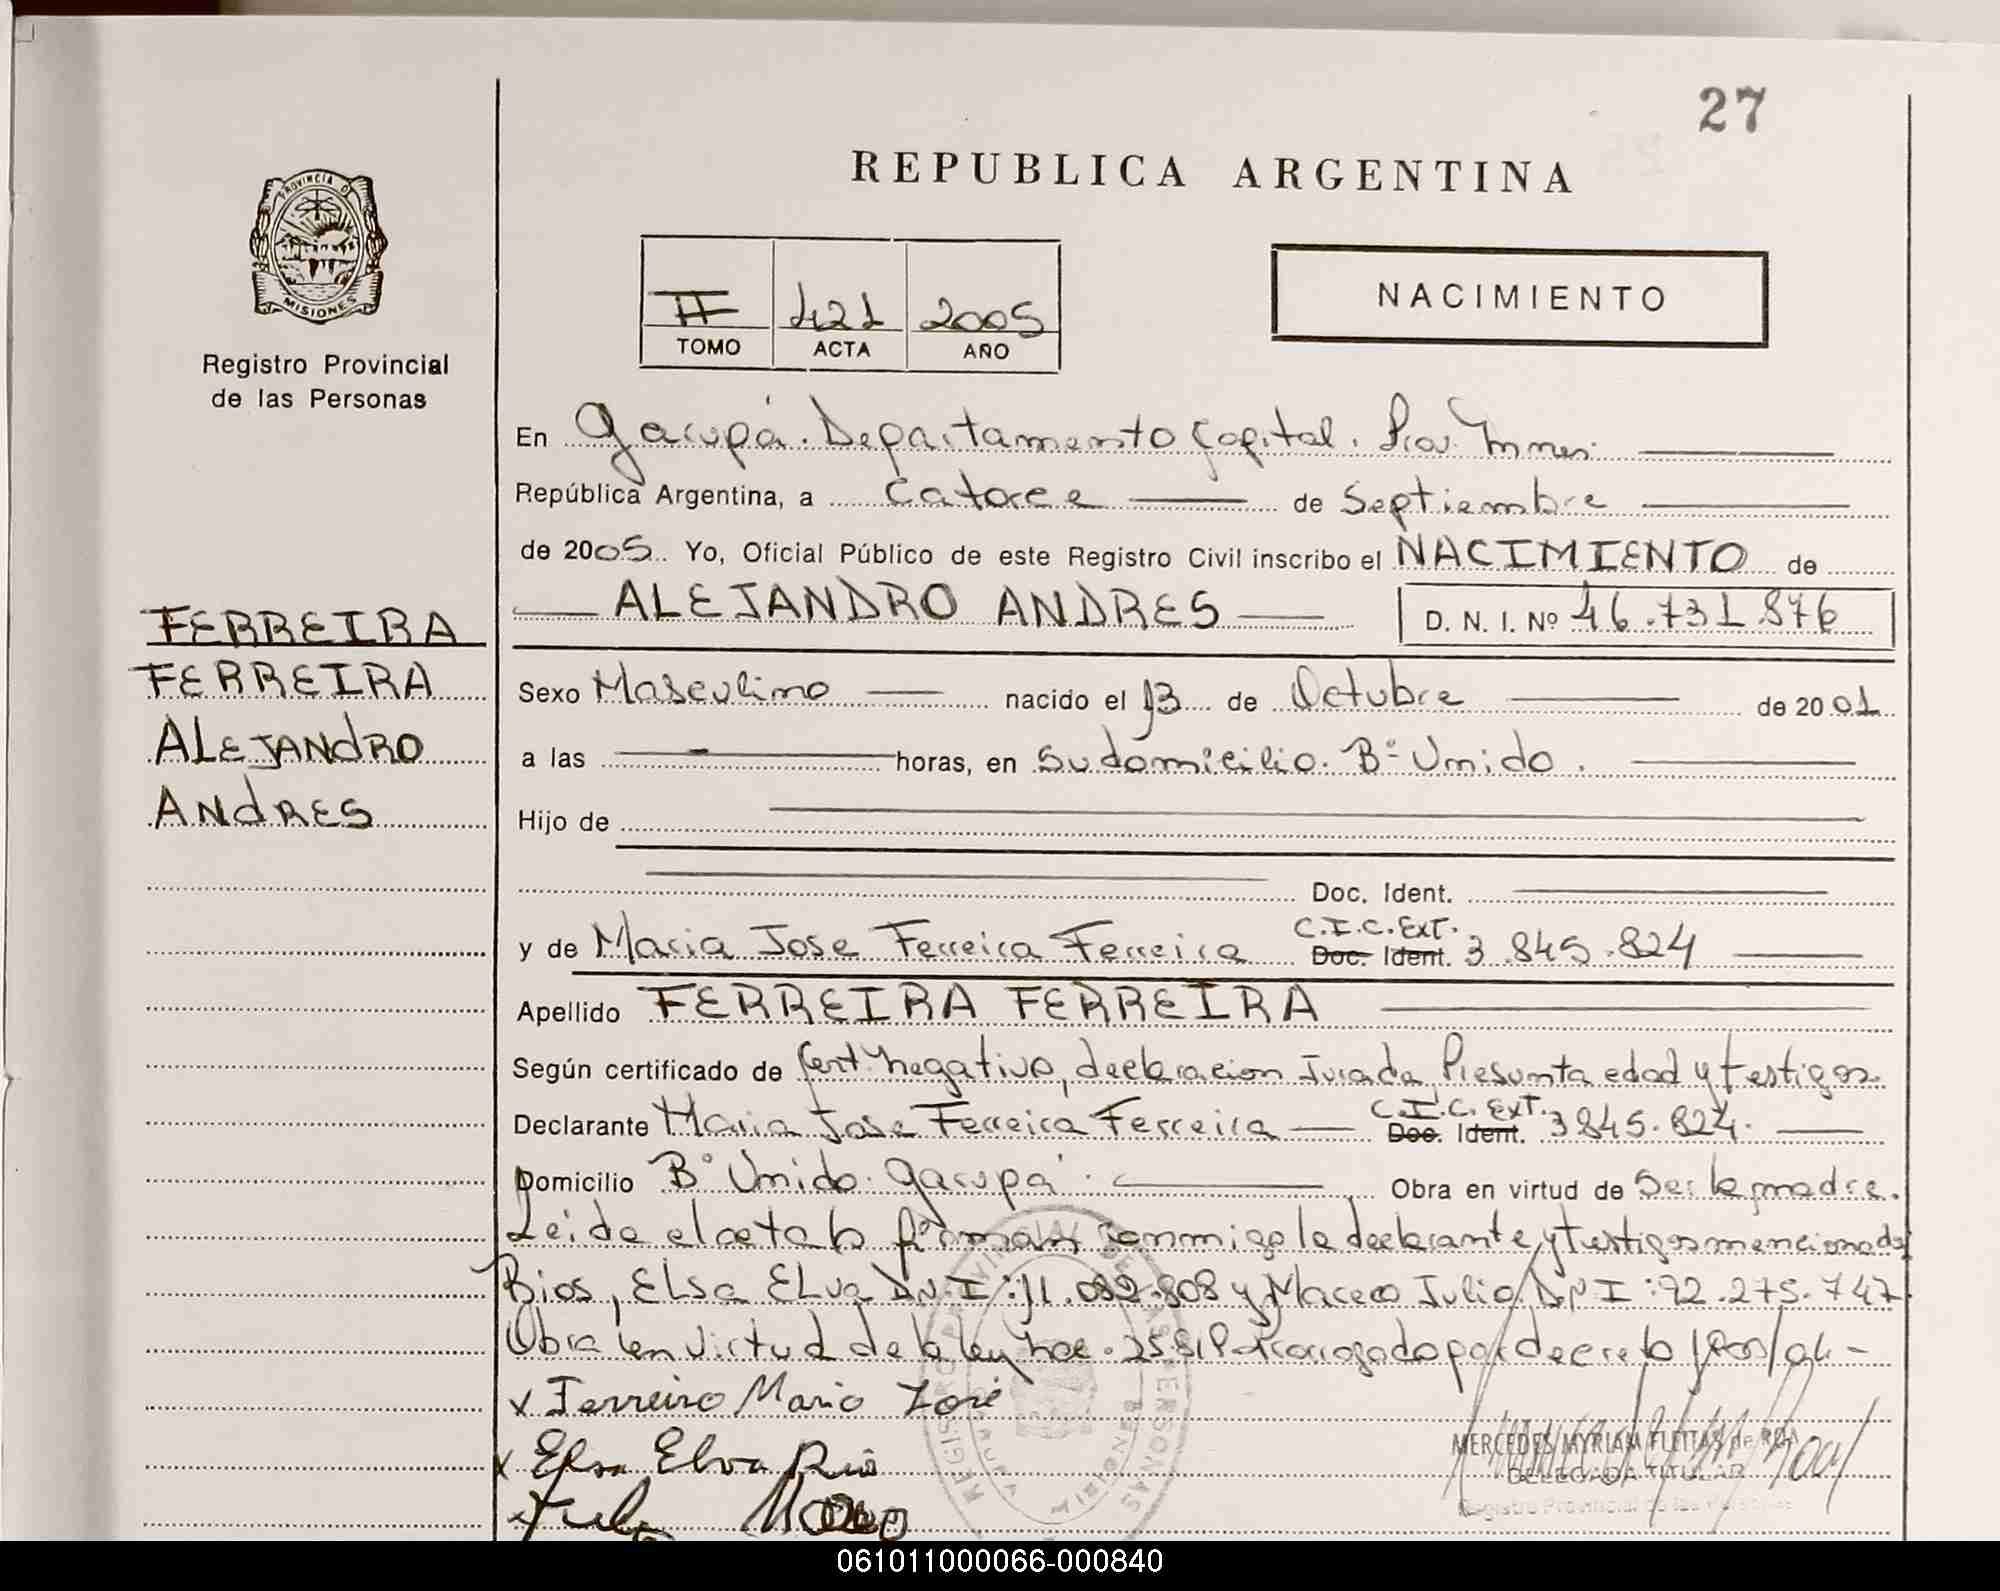 27
REPUBLICA ARGENTINA
PROVINCIA D MISIONES
Registro Provincial
de las Personas
II 421 2005
TOMO ACTA AÑO
NACIMIENTO
En Garupá. Departamento Capital. Prov. Mnes.
República Argentina, a catorce de Septiembre
de 2005 Yo, Oficial Público de este Registro Civil inscribo el NACIMIENTO de
ALEJANDRO ANDRES D. N. I. Nº 46.731.876
FERREIRA
FERREIRA
ALEJANDRO
ANDRES
Sexo Masculino nacido el 13 de Octubre de 2001
a las horas, en su domicilio. Bº Unido.
Hijo de
Doc. Ident.
y de Maria Jose Ferreira Ferreira C.I.C. EXT. Doc. Ident. 3.845.824
Apellido FERREIRA FERREIRA
Según certificado de Cert. negativo, declaracion Jurada, Presunta edad y testigos.
Declarante Maria Jose Ferreira Ferreira C.I.C. EXT. Doc. Ident. 3845.824.
Domicilio Bº Unido. Garupá. Obra en virtud de Ser la madre.
Leida el acta la firman conmigo la declarante y testigos mencionados
Rios, Elsa Elva D.N.I: 11.082.808 y Maceo Julio D.N.I: 92.275.747
Obra en virtud de la ley nac. 25819 prorrogado por decreto
x Ferreira Maria José
x Elsa Elva Rio
x Julio
REGISTRO PROVINCIAL DE LAS PERSONAS
MERCEDES MYRIAM FLEITAS de ROA
DELEGADA TITULAR
Registro Provincial de las Personas
061011000066-000840